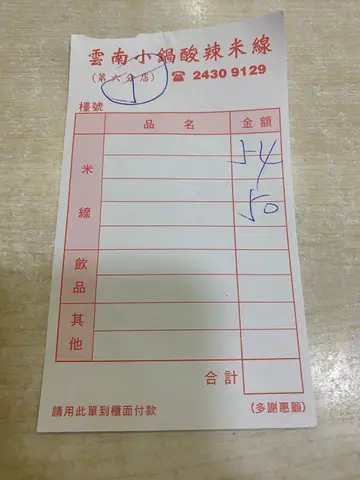 雲南小鍋酸辣米線
(第六分店) ☎ 2430 9129
1
檯號
品名 金額
米線
54
50
飲品
其他
合計
請用此單到櫃面付款 (多謝惠顧)